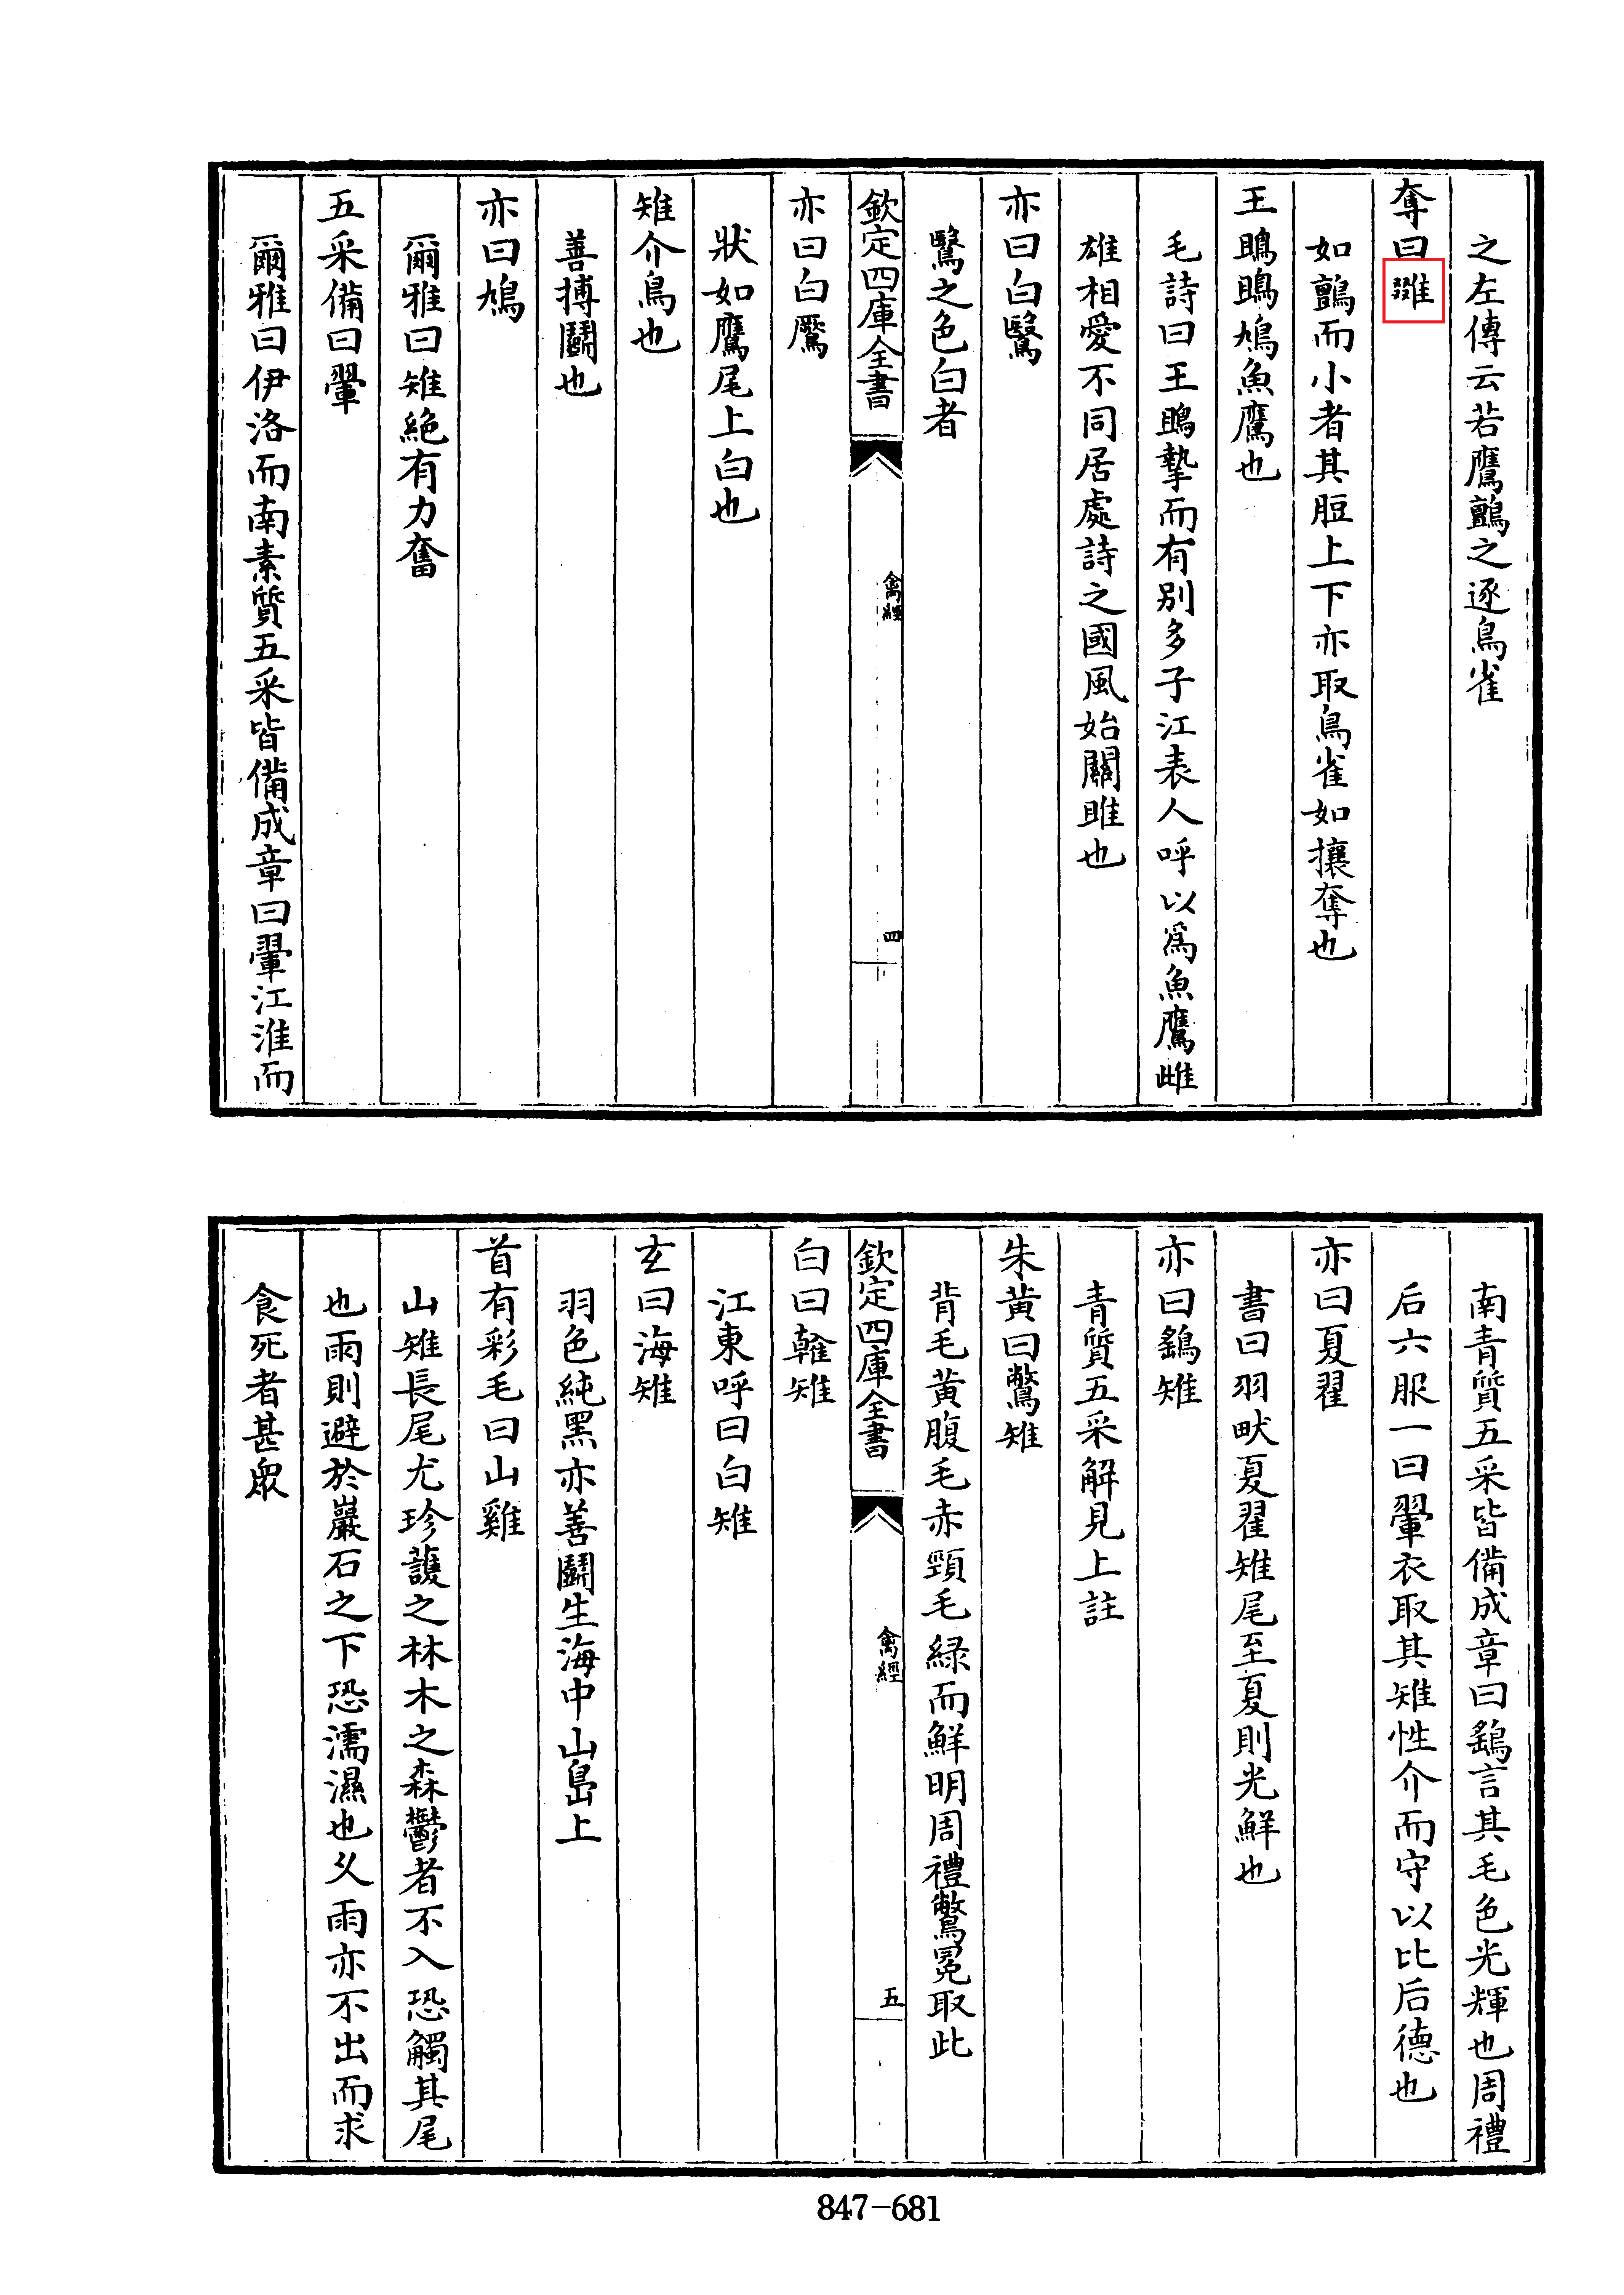 之左傳云若鷹鸇之逐鳥雀
奪曰⿰叕隹
如鸇而小者其脰上下亦取鳥雀如攘奪也
王鴡鴡鳩魚鷹也
毛詩曰王鴡摯而有別多子江表人呼以為魚鷹雌
雄相愛不同居處詩之國風始關雎也
亦曰白鷖
鷖之色白者
欽定四庫全書
禽經
四
亦曰白鷢
狀如鷹尾上白也
雉介鳥也
善搏鬭也
亦曰鳩
爾雅曰雉絶有力奮
五采備曰翬
爾雅曰伊洛而南素質五采皆備成章曰翬江淮而
南青質五采皆備成章曰鷂言其毛色光輝也周禮
后六服一曰翬衣取其雉性介而守以比后德也
亦曰夏翟
書曰羽畎夏翟雉尾至夏則光鮮也
亦曰鷂雉
青質五采解見上註
朱黄曰鷩雉
背毛黄腹毛赤頸毛緑而鮮明周禮鷩冕取此
欽定四庫全書
禽經
五
白曰雗雉
江東呼曰白雉
玄曰海雉
羽色純黑亦善鬭生海中山島上
首有彩毛曰山雞
山雉長尾尤珍護之林木之森鬱者不入恐觸其尾
也雨則避於巖石之下恐濡濕也久雨亦不出而求
食死者甚衆
847-681